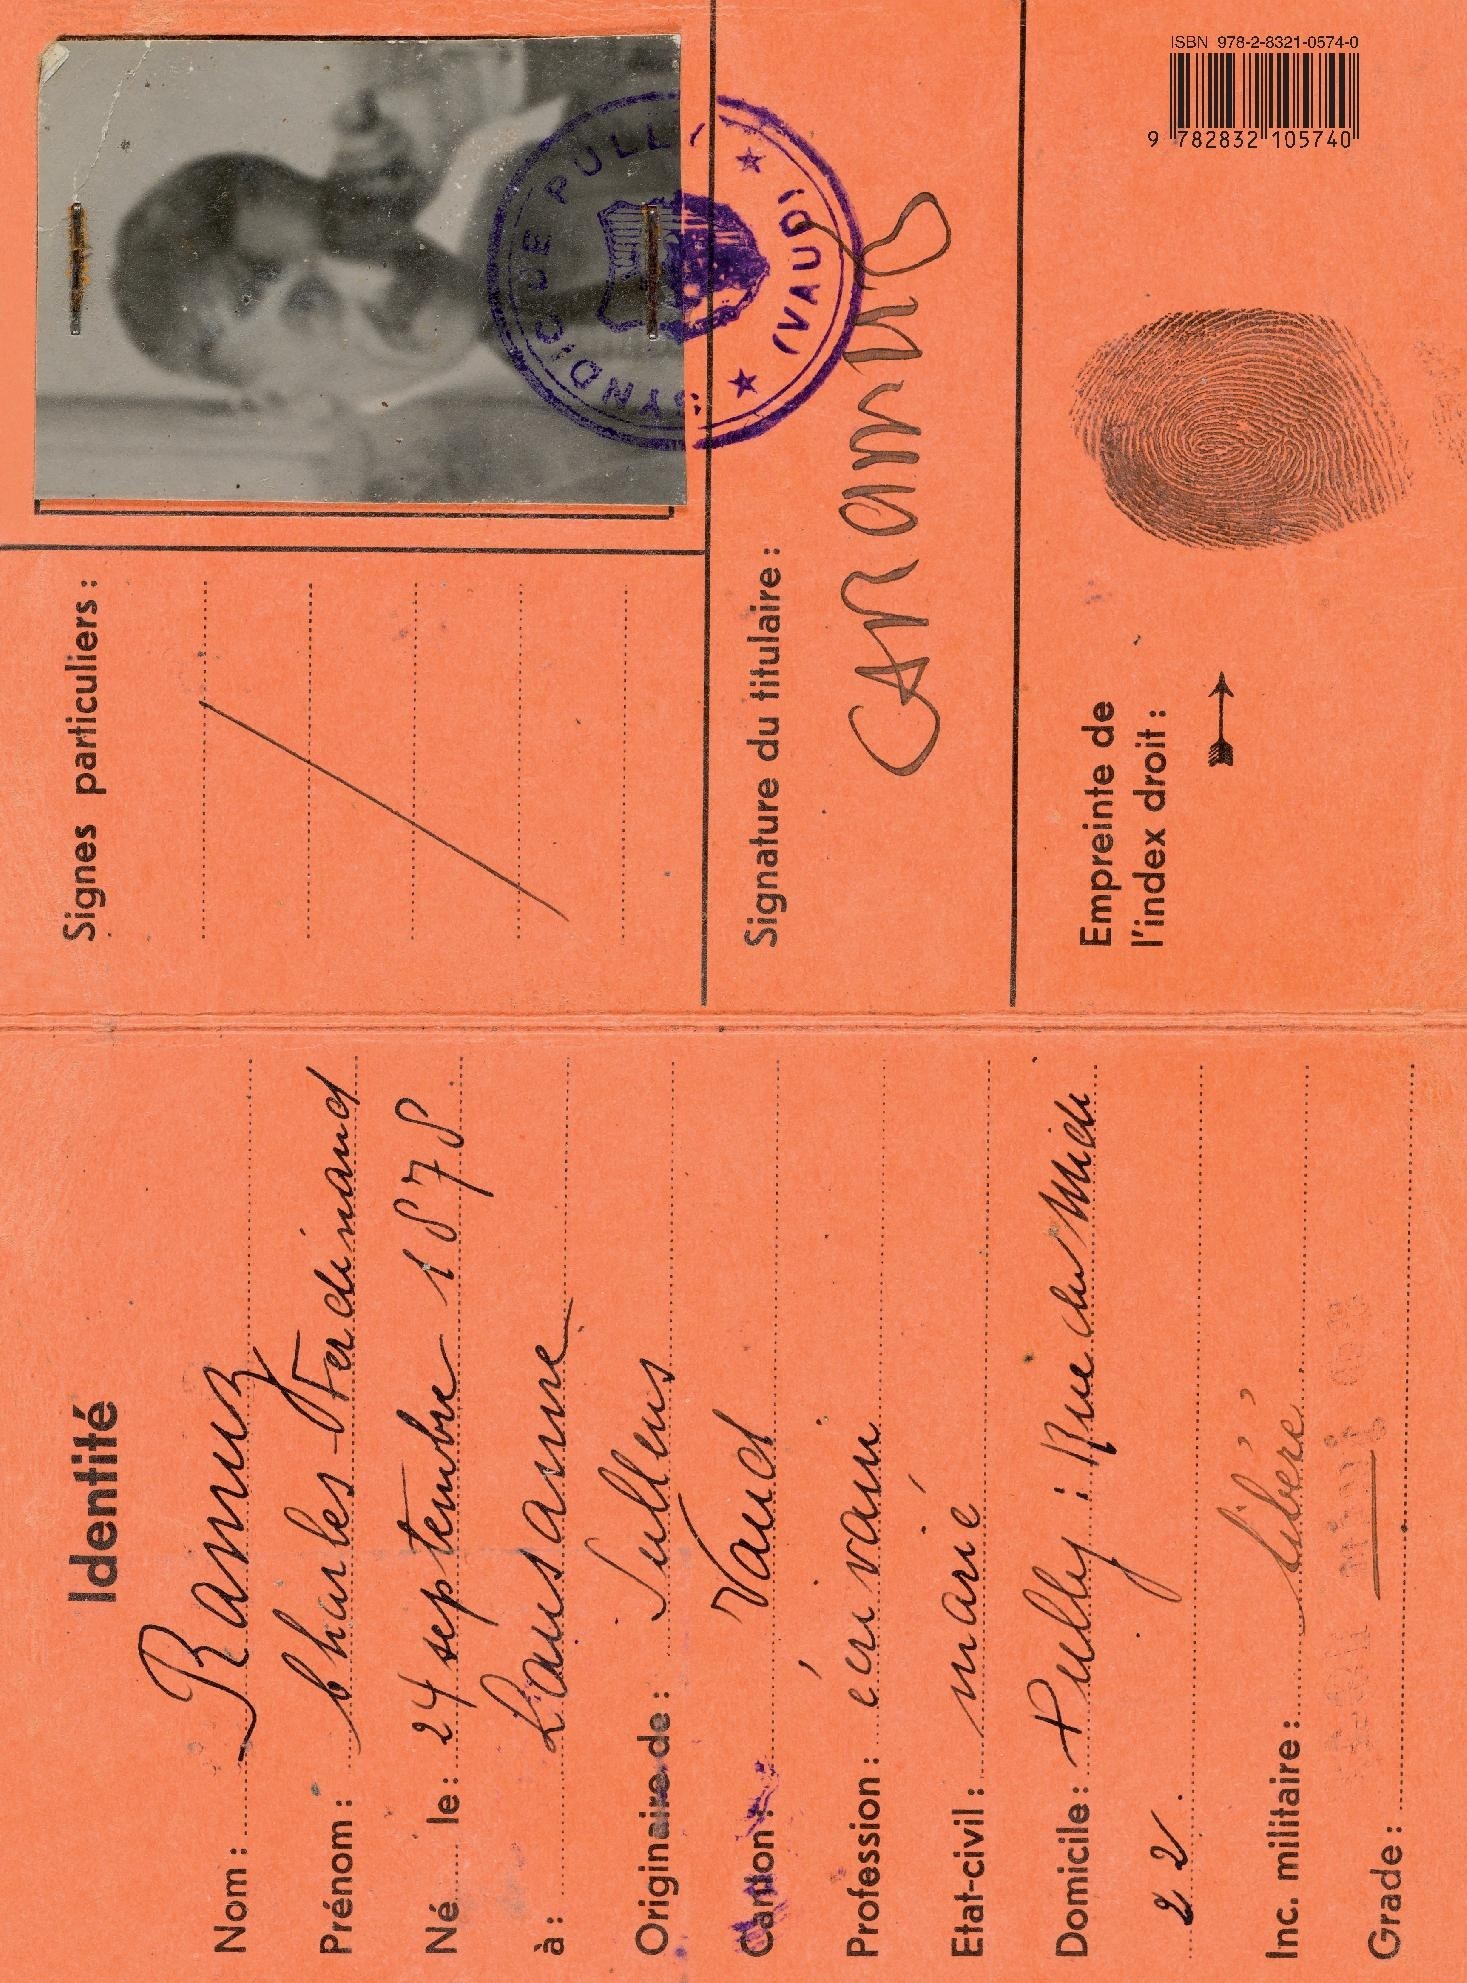 Identité
Nom : Ramuz
Prénom : Charles-Ferdinand
Né le : 24 septembre 1878
à : Lausanne
Originaire de : Sullens
Canton : Vaud
Profession : écrivain
Etat-civil : marié
Domicile : Pully : Rue du
22.
Inc. militaire : libéré
Grade :
Signes particuliers :
SYNDIC DE PULLY
(VAUD)
Signature du titulaire :
C F Ramuz
Empreinte de
l'index droit :
ISBN 978-2-8321-0574-0
9 782832 105740